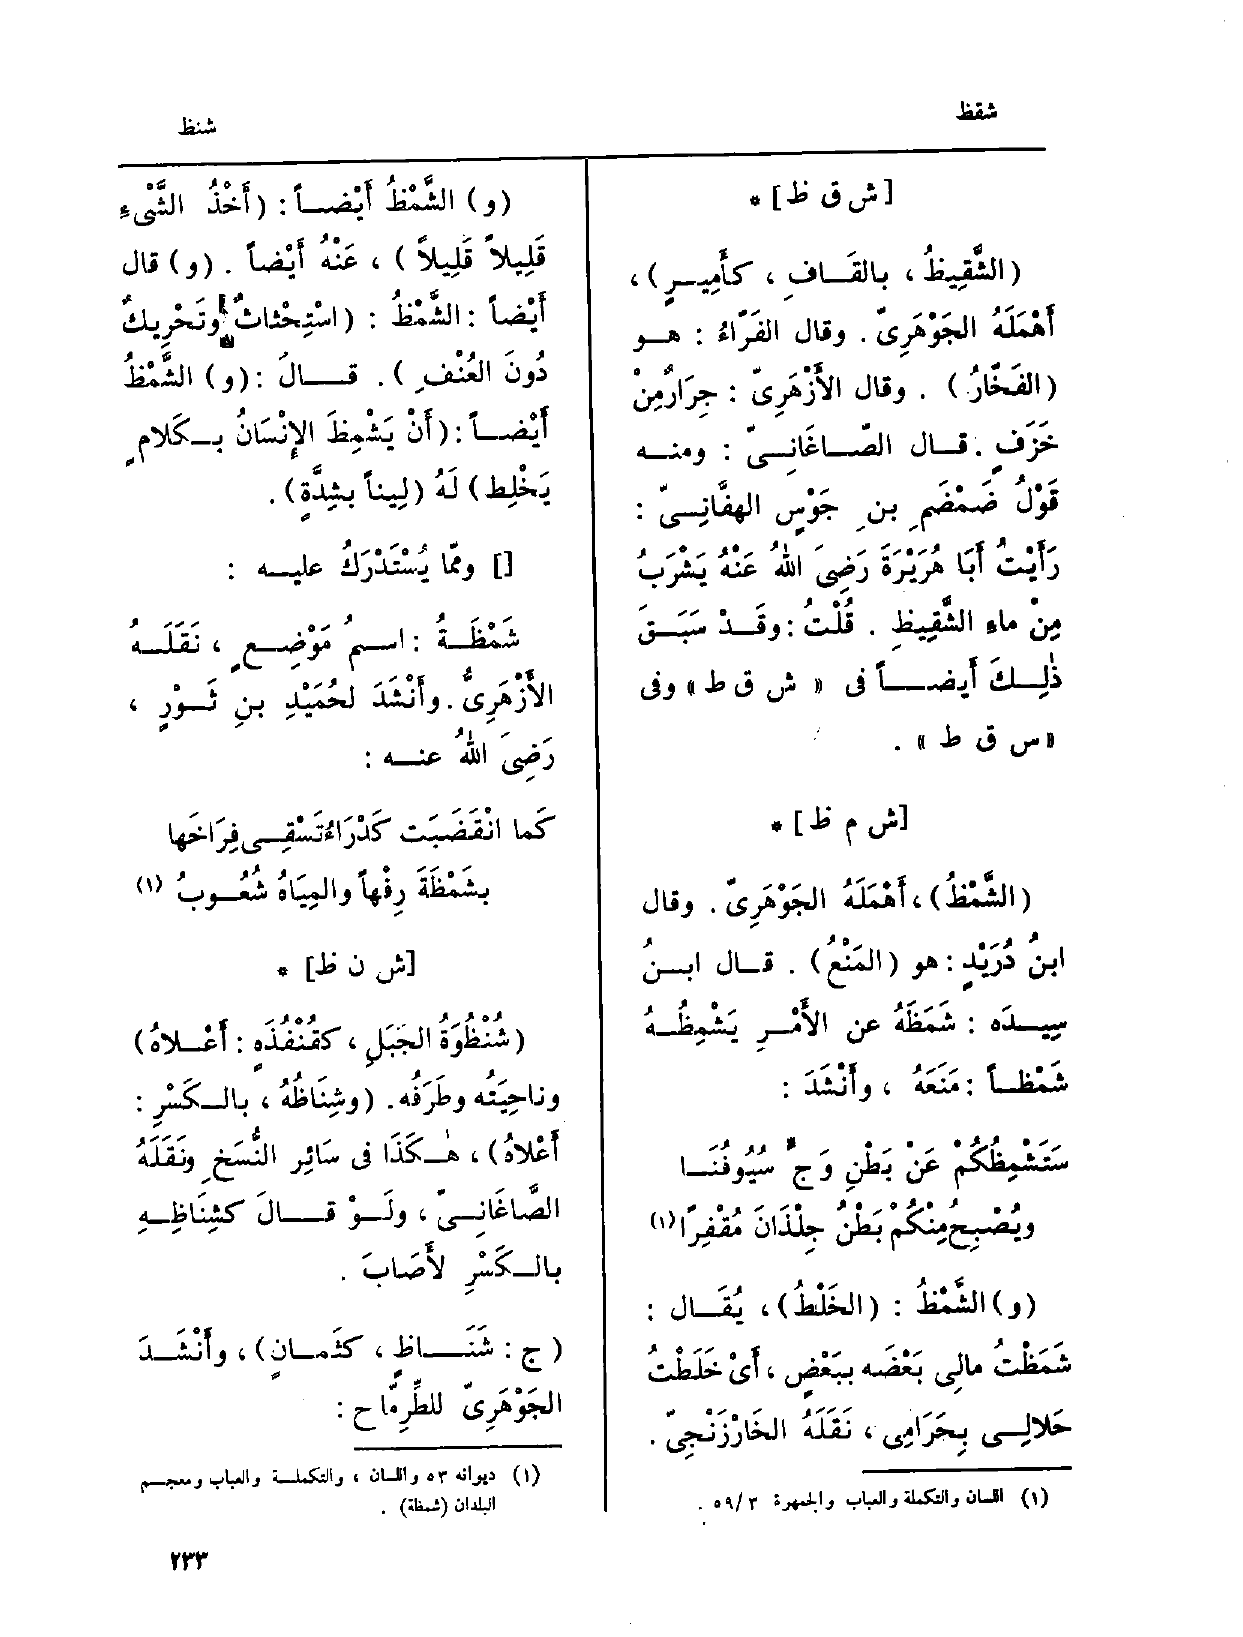 شقظ
شنظ
[ش ق ظ] *
(الشَّقِيظُ ، بالقَـاف ، كأَمِيـرٍ) ،
أَهْمَلَهُ الجَوْهَرِىّ . وقال الفَرّاءُ : هـو
(الفَخّارُ) . وقال الأَزْهَرِىّ : جِرَارٌ مِنْ
خَزَفٍ . قـال الصّـاغَانِـىّ : ومنـه
قَوْلُ ضَمْضَمِ بنِ جَوْسٍ الهِفّانِـىّ :
رَأَيْتُ أَبَا هُرَيْرَةَ رَضِىَ اللهُ عَنْهُ يَشْرَبُ
مِنْ ماءِ الشَّقِيظِ . قُلْتُ : وقَـدْ سَبَـقَ
ذٰلِـكَ أَيضـاً فى « ش ق ط » وفى
«س ق ط» .
[ش م ظ] *
(الشَّمْظُ) ، أَهْمَلَهُ الجَوْهَرِىّ . وقال
ابنُ دُرَيْدٍ : هو (المَنْعُ) . قـال ابـنُ
سِيـدَه : شَمَظَهُ عن الأَمْـرِ يَشْمِظُـهُ
شَمْظـاً : مَنَعَهُ ، وأَنْشَدَ :
سَتَشْمِظُكُمْ عَنْ بَطْنِ وَجٍّ سُيُوفُنَـا
ويُصْبِحُ مِنْكُمْ بَطْنُ جِلْذَانَ مُقْفِرَا (١)
(و) الشَّمْظُ : (الخَلْطُ) ، يُقَـال :
شَمَظْت مالِى بَعْضَه بِبَعْضٍ ، أَىْ خَلَطْتُ
حَلالِـى بِحَرَامِى ، نَقَلَهُ الخَارْزَنْجِىّ .
(١) اللسان والتكملة والعباب والجمهرة ٣ / ٥٩ .
(و) الشَّمْظُ أَيْضـاً : (أَخْذُ الشَّىْءِ
قَلِيلاً قَلِيلاً ) ، عَنْهُ أَيْضاً . (و) قال
أَيْضاً : الشَّمْظُ : (اسْتِحْثاثٌ وتَحْرِيكٌ
دُونَ العُنْفِ ) . قـالَ : (و) الشَّمْظُ
أَيْضـاً : (أَنْ يَشْمِظَ الإِنْسَانُ بـكَلامٍ
يَخْلِط) لَهُ (لِيناً بشِدَّةٍ) .
[] وممّا يُسْتَدْرَكُ عليـه :
شَمْظَـةُ : اسـمُ مَوْضِـعٍ ، نَقَلَـهُ
الأَزْهَرِىُّ . وأَنْشَدَ لحُمَيْدِ بنِ ثَـوْرٍ ،
رَضِىَ اللهُ عنـه :
كَما انْقَضَبَت كَدْرَاءُ تَسْقِـى فِرَاخَها
بشَمْظَةَ رِفْهاً والمِيَاهُ شُعُـوبُ (١)
[ش ن ظ] *
(شُنْظُوَةُ الجَبَلِ ، كقُنْفُذَةٍ : أَعْـلاهُ)
وناحِيَتُه وطَرَفُه . (وشِنَاظُهُ ، بالـكَسْرِ :
أَعْلاهُ) ، هـٰكَذَا فى سَائِر النُّسَخِ ونَقَلَهُ
الصَّاغَانِـىّ ، ولَـوْ قـالَ كشِنَاظِـهِ
بالـكَسْرِ لأَصَابَ .
( ج : شَنَـاظٍ ، كثَمـانٍ) ، وأَنْشَـدَ
الجَوْهَرِىّ للطِّرِمّاح :
(١) ديوانه ٥٣ واللسان ، والتكملـة والعباب ومعجـم
البلدان (شمظة) .
٢٣٣